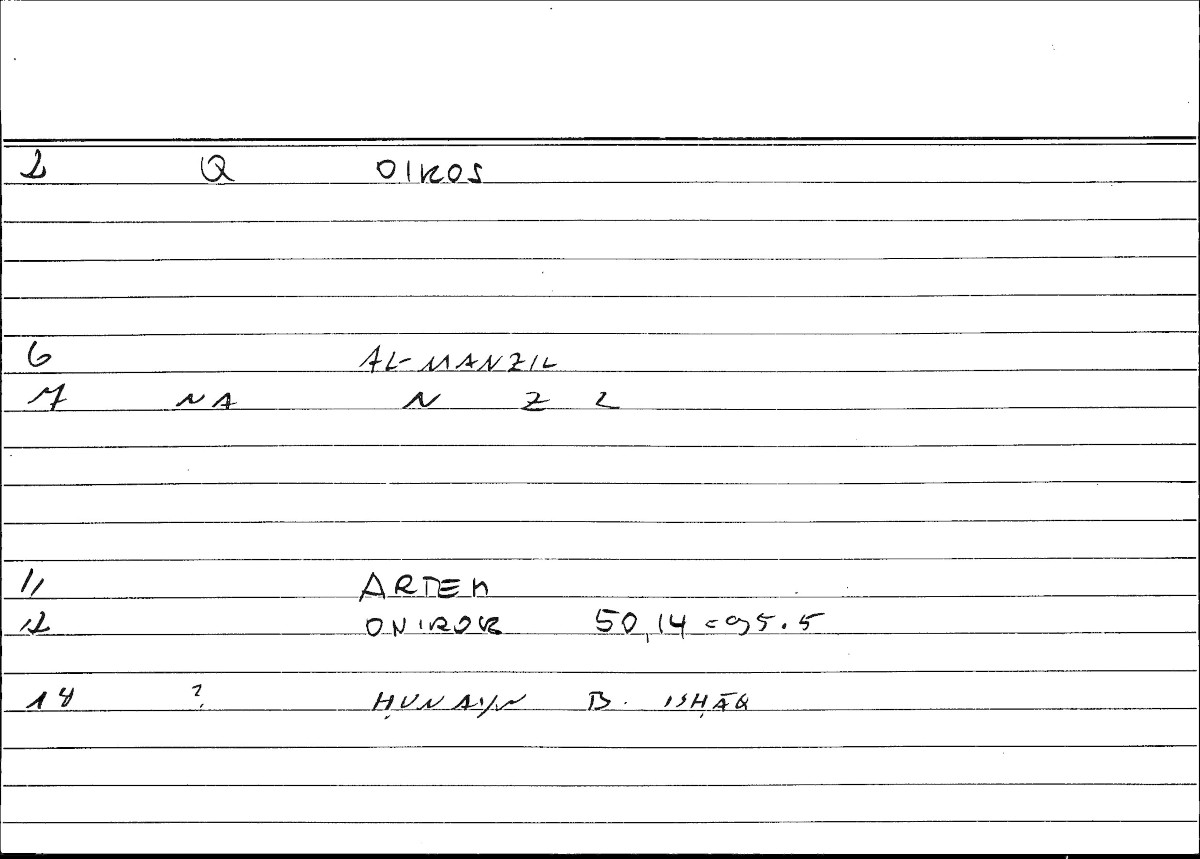 2 Q OIKOS
6 AL-MANZIL
7 NA N Z L
11 ARTEM
12 ONIROK 50,14 = 95.5
14 ? ḤUNAYN B. ISḤĀQ